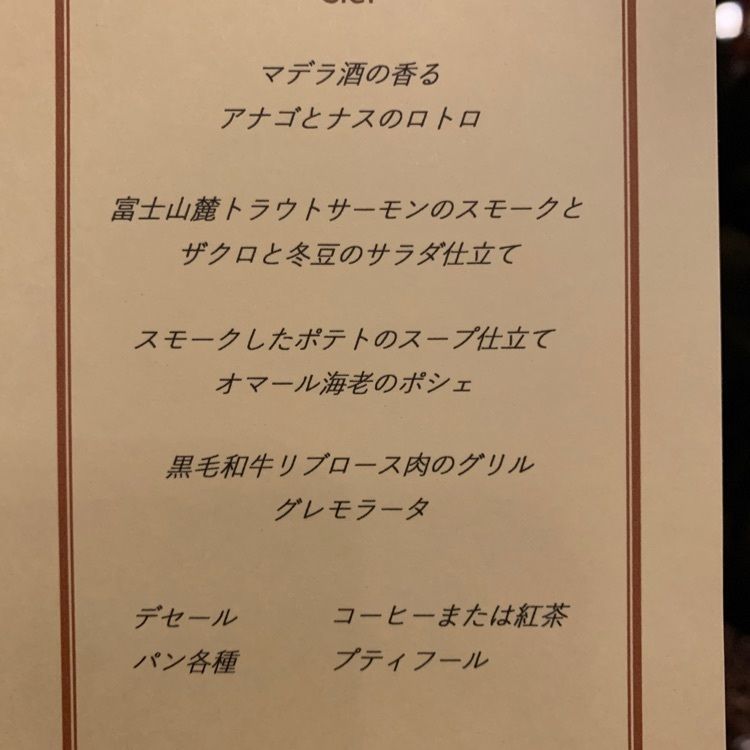 マデラ酒の香る
アナゴとナスのロトロ
富士山麓トラウトサーモンのスモークと
ザクロと冬豆のサラダ仕立て
スモークしたポテトのスープ仕立て
オマール海老のポシェ
黒毛和牛リブロース肉のグリル
グレモラータ
デセール コーヒーまたは紅茶
パン各種 プティフール